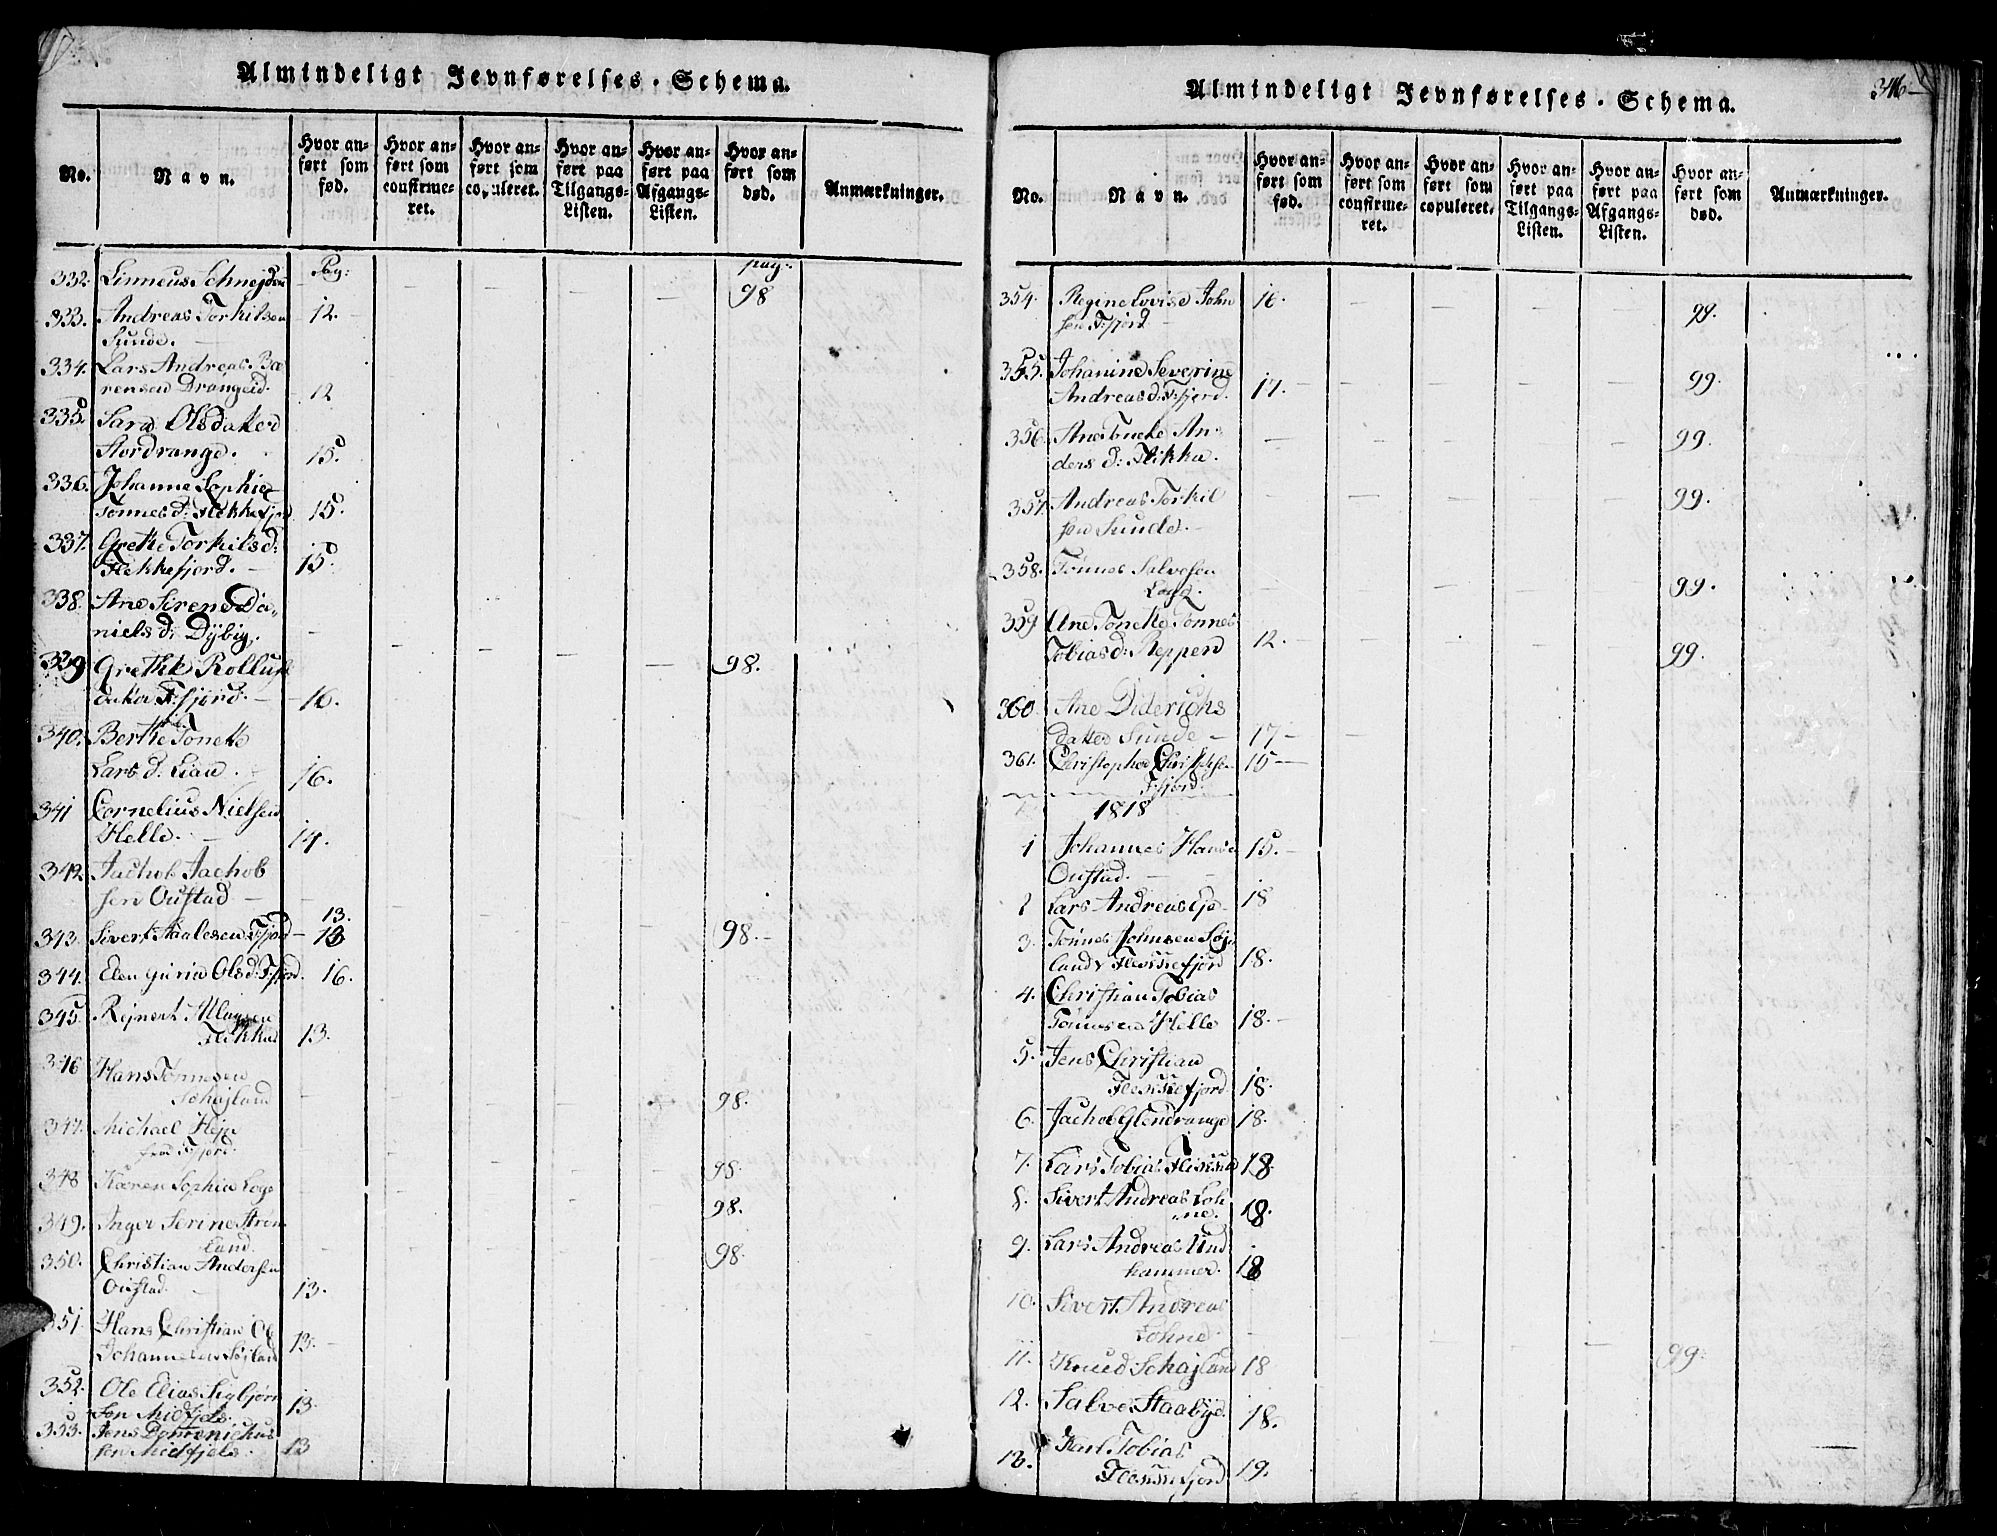 Almindeligt Jevnførelses-Schema.
No.
Navn.
Hvor anført som fød.
Hvor anført som confirmeret.
Hvor anført som copuleret.
Hvor anført paa Tilgangs-Listen.
Hvor anført paa Afgangs-Listen.
Hvor anført som død.
Anmærkninger.
Pag:
pag:
332. Linneus Schnejder 98
333. Andreas Torkilsen 12.
Sunde.
334. Lars Andreas Bæ
rensen Drangeid. 12
335. Sara Olsdatter
Stordrange. 15.
336. Johanne Sophie
Tønnes d: Flekkefjord 15.
337. Grethe Torkilsd:
Flekkefjord. 15.
338. Ane Sirene Da-
niels d: Dybig.
339 Grethe Rolluf 98.
datter F:fjord. 16.
340. Berthe Tonette
Lars d: Lian. 16.
341 Cornelius Nielsen
Helle. 14.
342 Jachob Jachob
sen Oustad 13.
343. Sivert Aalesen F:fjord 13 98.
344. Elen Guria Olsd: F:fjord. 16.
345. Rejnert
Flikka 13.
346 Hans Tønnesen
Schøjland 98.
347. Michael Hejn
fra F:fjord. 98.
348 Karen Sophia Loge 98.
349. Inger Serine Strøm
land. 98.
350. Christian Andersen
Oustad. 13.
351. Hans Christian
Johannesen Søjland 13.
352. Ole Elias Sigbjørn
sen Midfjels. 13.
353. Jens
sen Midfjels. 13
Almindeligt Jevnførelses-Schema.
346
No.
Navn.
Hvor anført som fød.
Hvor anført som confirmeret.
Hvor anført som copuleret.
Hvor anført paa Tilgangs-Listen.
Hvor anført paa Afgangs-Listen.
Hvor anført som død.
Anmærkninger.
354. Regine Lovise John 16.
sen F:fjord 99.
355. Johanine Severine
Andreas d: F:fjord. 17. 99.
356. Ane Toneke An-
ders d: Flikka. 99.
357. Andreas Torkil
sen Sunde. 99.
358. Tønnes Salvesen
99.
359 Ane Toneke Tønnes
Tobias d: Reppen 12. 99.
360. Ane Diderichs
datter Sunde 17
361. Christopher 15
F:fjord.
1818
1 Johannes Hansen 15.
Oustad.
2 Lars Andreas 18
3. Tønnes Johnsen Søj
land Flekkefjord 18.
4. Christian Tobias
Tønnesen Helle 18.
5. Jens Christian
Flekkefjord. 18.
6. Jachob Glendrange 18.
7. Lars Tobias Flikka 18.
8. Sivert Andreas Loh
ne. 18.
9. Lars Andreas Und
hammer. 18
10. Sivert Andreas
Lohne.
99.
11. Knud Schøjland 18
12. Salve Staabye. 18.
13. Karl Tobias
Flekkefjord 19.